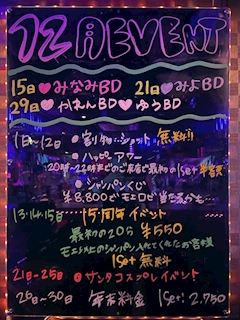 12月EVENT
15日♥みなみBD 21日♥みよBD
29日♥かれんBD♥ゆらBD
1日〜12日 ●割り物・ショット 無料!!
●ハッピーアワー
20時〜22時までのご来店で最初の1set半額
●シャンパンくじ
¥8,800でモエロゼ当たるかも…
13・14・15日…15周年イベント
最初の20分 ¥550
モエ以上のシャンパン入れてくれたお客様
1Set 無料
21日-25日 ●サンタコスプレイベント
26日-30日 年末料金 1Set: 2,750